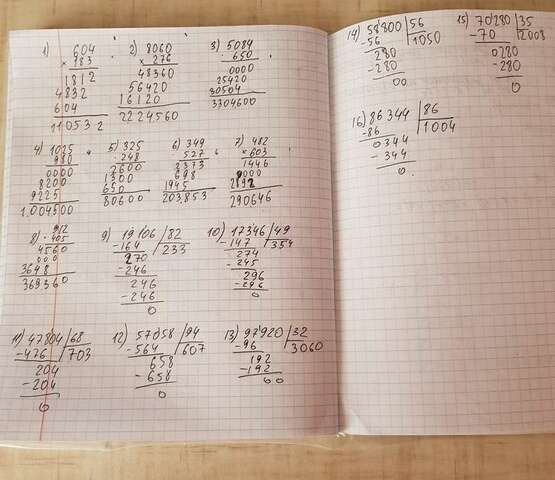 1) 604
× 183
1812
4832
604
110532
2) 8060
× 276
48360
56420
16120
2224560
3) 5084
650
0000
25420
30504
3304600
4) 1025
980
0000
8200
9225
1.004500
5) 325
248
2600
1300
650
80600
6) 349
527
2373
698
1945
203,853
7) 482
×603
1446
0000
2892
290646
8) 912
405
4560
000
3648
369360
9) 19106 82
-164 233
270
-246
246
-246
0
10) 17346 49
-147 354
274
-245
296
-296
0
11) 47804 68
-476 703
204
-204
0
12) 57058 94
-564 607
658
-658
0
13) 97920 32
-96 3060
192
-192
00
14) 58800 56
-56 1050
280
-280
00
15) 70280 35
-70 2008
0280
-280
0
16) 86344 86
-86 1004
0344
-344
0